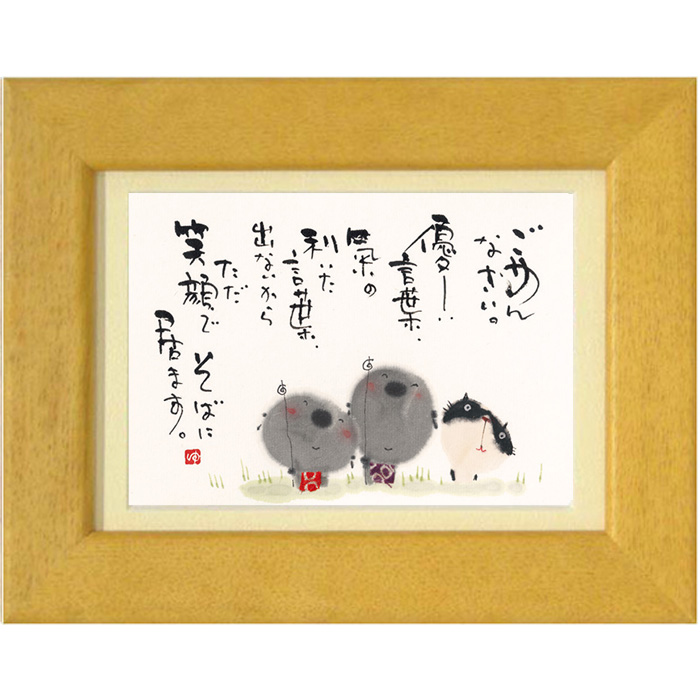 ごめん
なさい。
優しい
言葉、
氣の
利いた
言葉、
出ないから
ただ
笑顔で
そばに
居ます。